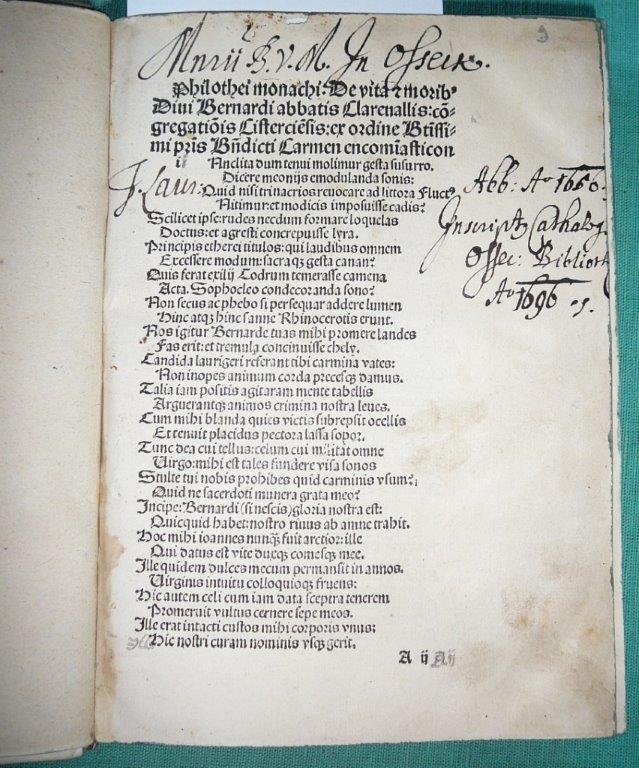 Mnrii B. V. M. In Osseck.
Philothei monachi: De vita ⁊ moribꝰ
Diui Bernardi abbatis Clareuallis: cō-
gregatiōis Cisterciēsis: ex ordine Btissi-
mi pris Bn̄dicti Carmen encomiasticon
Anclita dum tenui molimur gesta susurro.
Dicere meonijs emodulanda sonis:
J. Laur:
Quid nisi trinacrios reuocare ad littora Fluctꝰ
Abb: Aº 1656.
Nitimur: et modicis imposuisse cadis?
Scilicet ipse: rudes necdum formare loquelas
Inscriptꝰ Cathalog.
Doctus: et agresti concrepuisse lyra.
Principis etherei titulos: qui laudibus omnem
Ossec: Biblioth
Excessere modum: sacraqꝫ gesta canan?
Quis ferat exilij Codrum temerasse camena
Aº 1696
Acta. Sophocleo condecoranda sono?
Non secus ac phebo si persequar addere lumen
Hinc atqꝫ hinc sanne Rhinocerotis erunt.
Nos igitur Bernarde tuas mihi promere laudes
Fas erit: et tremula concinuisse chely.
Candida laurigeri referant tibi carmina vates:
Non inopes animum corda precesqꝫ damus.
Talia iam positis agitaram mente tabellis
Arguerantqꝫ animos crimina nostra leues.
Cum mihi blanda quies victis subrepsit ocellis
Et tenuit placidus pectora lassa sopor.
Tunc dea cui tellus: celum cui militat omne
Uirgo: mihi est tales fundere visa sonos
Stulte tui nobis prohibes quid carminis vsum?
Quid ne sacerdoti munera grata meo?
Incipe: Bernardi (si nescis) gloria nostra est:
Quicquid habet: nostro riuus ab amne trahit.
Hoc mihi ioannes nunqꝫ fuit arctior: ille
Qui datus est vite duxqꝫ comesqꝫ mee.
Ille quidem dulces mecum permansit in annos.
Uirginis intuitu colloquioqꝫ fruens:
Hic autem celi cum iam data sceptra tenerem
Promeruit vultus cernere sepe meos.
Ille erat intacti custos mihi corporis vnus:
Hic nostri curam nominis vsqꝫ gerit.
A ij